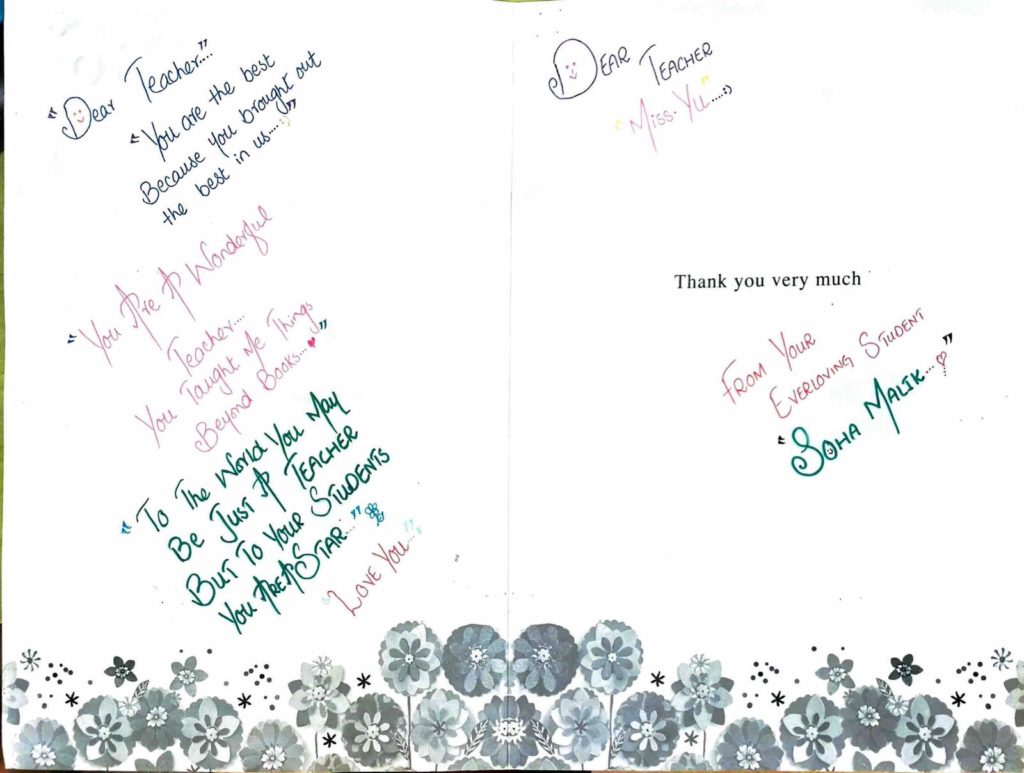 "Dear Teacher...."
"You are the best
Because you brought out
the best in us....:)"
"You Are A Wonderful
Teacher....
You Taught Me Things
Beyond Books...."
"To The World You May
Be Just A Teacher
But To Your Students
You Are A Star...."
"Love You..."
Dear Teacher
"Miss. Yu"....:)
Thank you very much
From Your
Everloving Student
"Soha Malik...."